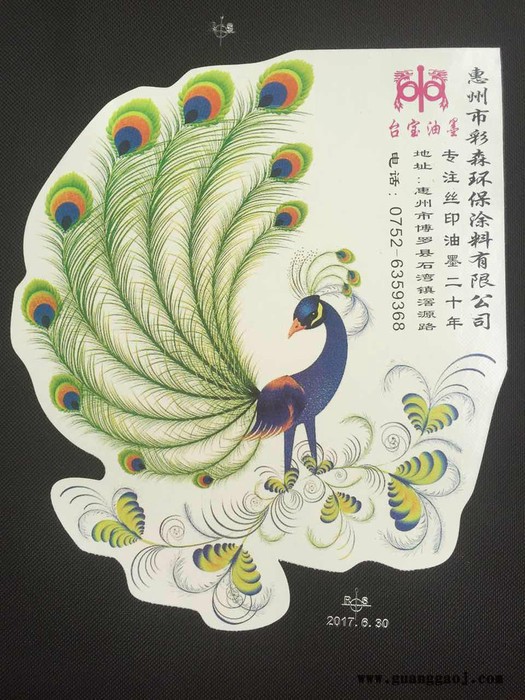 惠州市彩森环保涂料有限公司
专注丝印油墨二十年
台宝油墨
地址：惠州市博罗县石湾镇滘源路
电话：0752-6359368
R S
R S
2017.6.30
www.guanggaoj.com